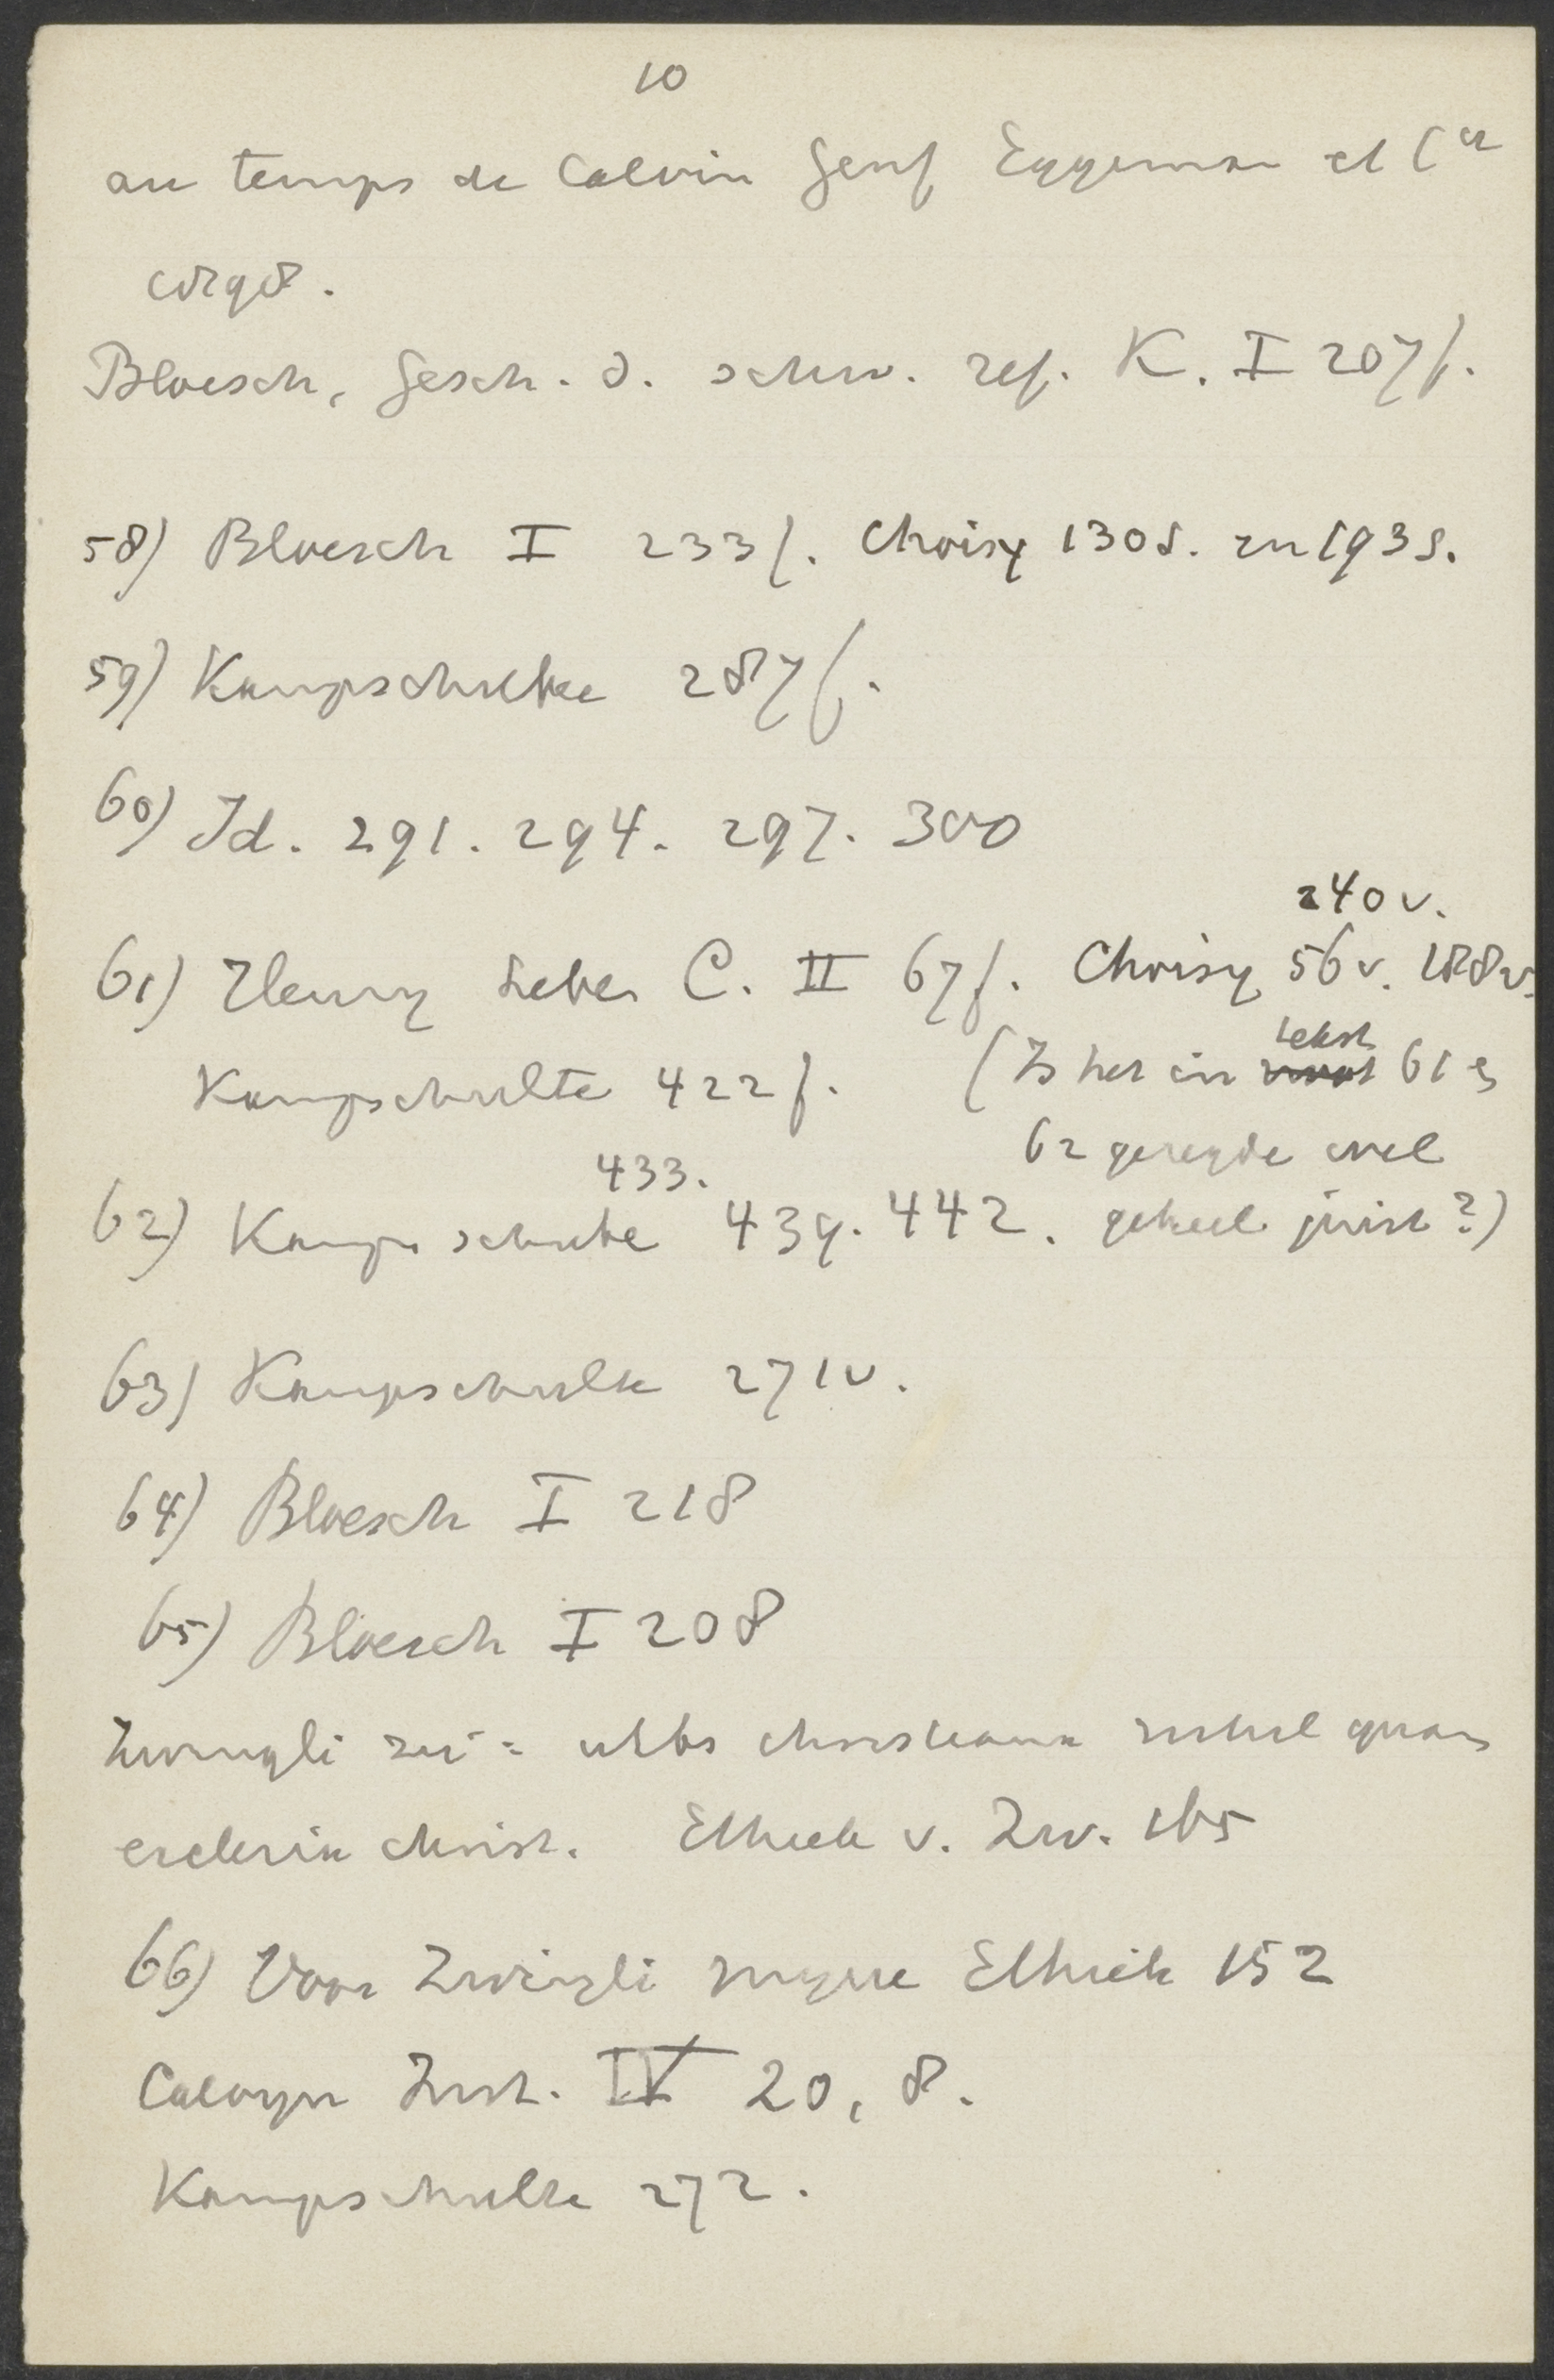 10
au temps de Calvin Genf Eggiman et Cie
Bloesch, Gesch. d. schw. ref. K. I 207f.
58) Bloesch I 233f. Choisy 130s. en 193s.
59) Kampschulte 287f.
60) Id. 291. 294. 297. 300
240 v.
61) Henry Leben C. II 67f. Choisy 56v. 188v.
Kampschulte 422f. (Is het in tekst 61 &
62 gezegde wel
433.
62) Kampschulte 439. 442. geheel juist?)
63) Kampschulte 271v.
64) Bloesch I 218
65) Bloesch I 208
Zwingli zei: urbs christiana nihil quam
ecclesia christ. Ethiek v. Zw. 165
66) Voor Zwingli mijne Ethiek 152
Calvyn Inst. IV 20, 8.
Kampschulte 272.